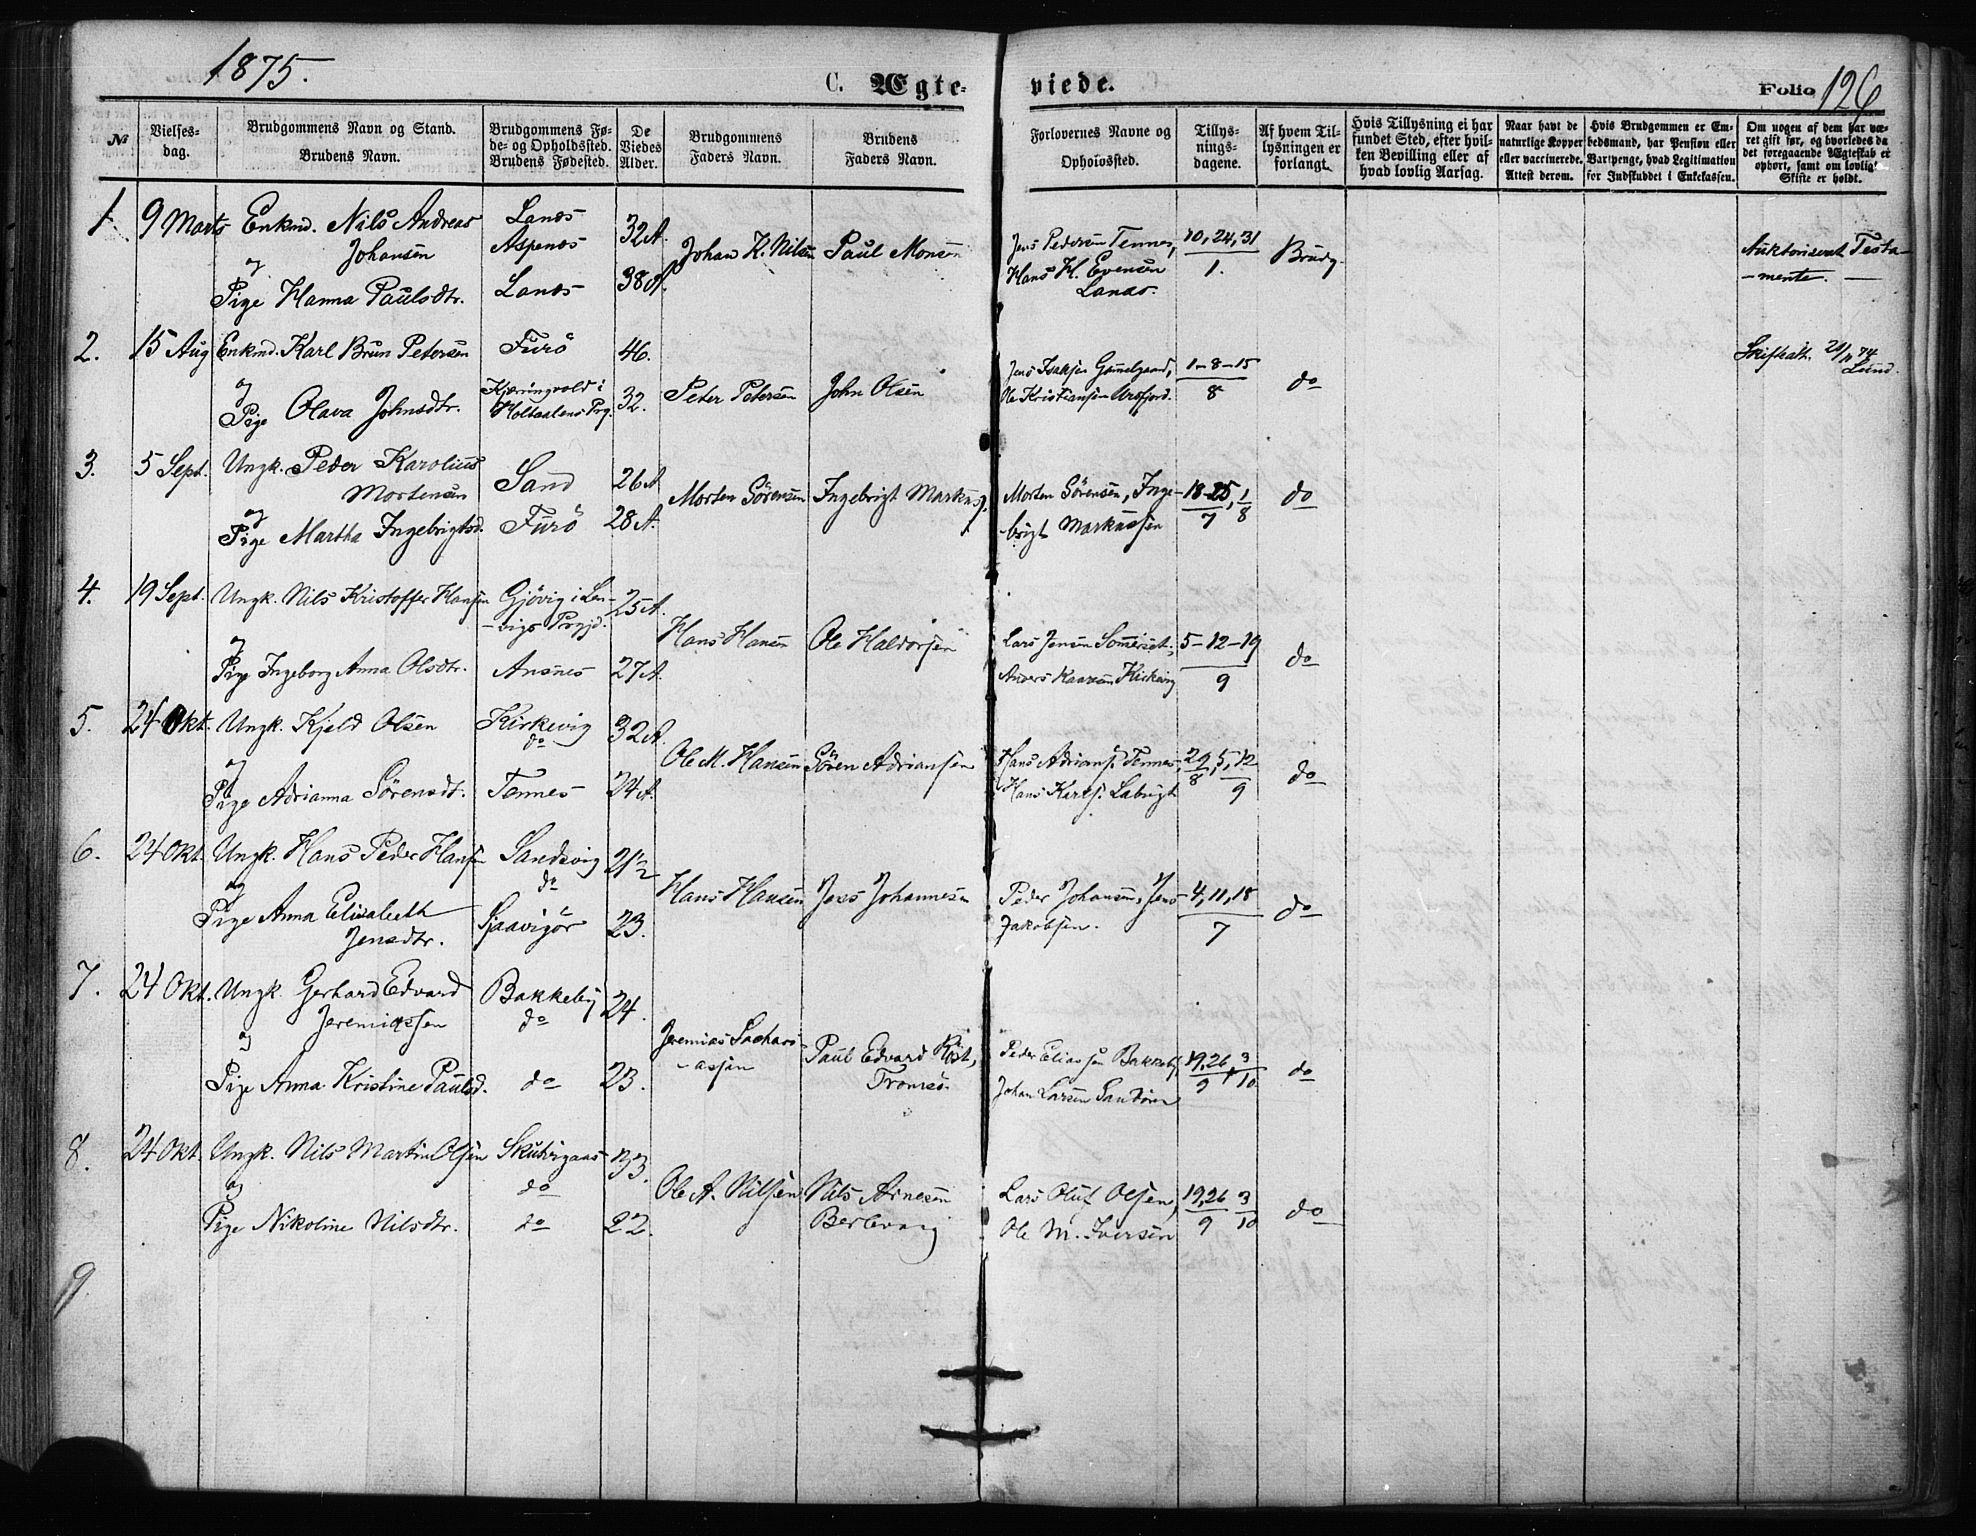 1875.
C. Ægte- viede.
Folio 126
№
Vielses-
dag.
Brudgommens Navn og Stand.
Brudens Navn.
Brudgommens Fø-
de- og Opholdssted.
Brudens Fødested.
De
Viedes
Alder.
Brudgommens
Faders Navn.
Brudens
Faders Navn.
Forlovernes Navne og
Opholdssted.
Tillys-
nings-
dagene.
Af hvem Til-
lysningen er
forlangt.
Hvis Tillysning ei har
fundet Sted, efter hvil-
ken Bevilling eller af
hvad lovlig Aarsag.
Naar havt de
naturlige Kopper
eller vaccinerede.
Attest derom.
Hvis Brudgommen er Em-
bedsmand, har Pension eller
Vartpenge, hvad Legitimation
for Indskuddet i Enkekassen.
Om nogen af dem har væ-
ret gift før, og hvorledes da
det foregaaende Ægteskab er
ophørt, samt om lovligt
Skifte er holdt.
1 9 Marts Enkmd. Nils Andreas
Johansen
og
Pige Hanna Paulsdtr.
Lanes
Aspenes
Lanes
32 A.
38 A.
Johan K. Nilsen Paul Monsen
Jens Pedersen Tennes,
Hans H. Evensen
Lanes.
10, 24, 31
1.
Brudg.
Auktoriseret Testa-
-mente. —
2. 15 Aug Enkmd. Karl Brun Petersen
og
Pige Olava Johnsdtr.
Furö
Kjærringvold i
Holtaalens Prg.
46.
32.
Peter Petersen John Olsen
Jens Isaksen Gammelgaard,
Ole Kristiansen Arsfjord.
1-8-15
8
do
Skifteatt. 21/11 74
Lund.
3. 5 Sept. Ungk. Peder Karolius
Mortensen
og
Pige Martha Ingebrigtsd.
Sand
Furö
26 A
28 A.
Morten Sörensen Ingebrigt Markuss.
Morten Sörensen, Inge-
-brigt Markussen
18-25, 1
7 8
do
4. 19 Sept. Ungk. Nils Kristoffer Hansen
og
Pige Ingeborg Anna Olsdtr.
Gjövig i Len-
-vigs Prgjd.
Ansnes
25 A.
27 A.
Hans Hansen Ole Haldorsen
Lars Jensen Sommerset,
Anders Kirkevig
5-12-19
9
do
5. 24 Okt. Ungk. Kjeld Olsen
og
Pige Adrianna Sörensdtr.
Kirkevig
do
Tennes
32 A.
24 A.
Ole M. Hansen Sören Adriansen
Hans Adrians. Tennes,
Hans Karls. Labugt
29, 5, 12
8 9
do
6. 24 Okt. Ungk. Hans Peder Hansen
og
Pige Anna Elisabeth
Jensdtr.
Sandsvig
do
Sjaavigör
21½
23.
Hans Hansen Jens Johannesen
Peder Johansen, Jens
Jakobsen.
4, 11, 18
7
do
7. 24 Okt. Ungk. Gerhard Edvard
Jeremiassen
og
Pige Anna Kristine Paulsd.
Bakkeby
do
do
24.
23.
Jeremias Sachari-
-assen
Paul Edvard Kist,
Tromsö.
Peder Eliassen Bakkeby,
Johan Larsen Sandören
19, 26, 3
9 10
do
8. 24 Okt. Ungk. Nils Martin Olsen
og
Pige Nikoline Nilsdtr.
Skulvignæs
do
do
33.
22.
Ole A. Nilsen Nils Arnesen
Berlevaag
Lars Oluf Olsen,
Ole M. Iversen
19, 26 3
9 10
do
9.